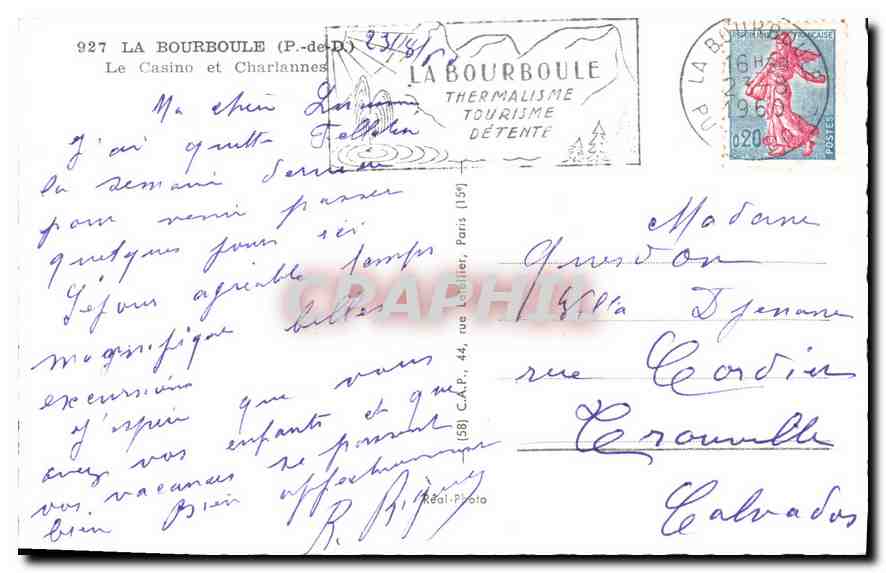 927 LA BOURBOULE (P.-de-D.)
Le Casino et Charlannes
23/8/60
LA BOURBOULE
THERMALISME
TOURISME
DÉTENTE
LA BOURBOULE
16H
23
1960
PUY
FRANÇAISE
0,20
POSTES
Ma chère
J'ai quitté Felletin
la semaine dernière
pour venir passer
quelques jours ici
Séjour agréable temps
magnifique belles
excursions
J'espère que vous
avez vos enfants et que
vos vacances se passent
bien Bien affectueusement
R.
(58) C.A.P., 44, rue Letellier, Paris (15e)
Réal-Photo
CRAPHIL
Madame
Quesdon
Villa Djenane
rue Cordier
Trouville
Calvados